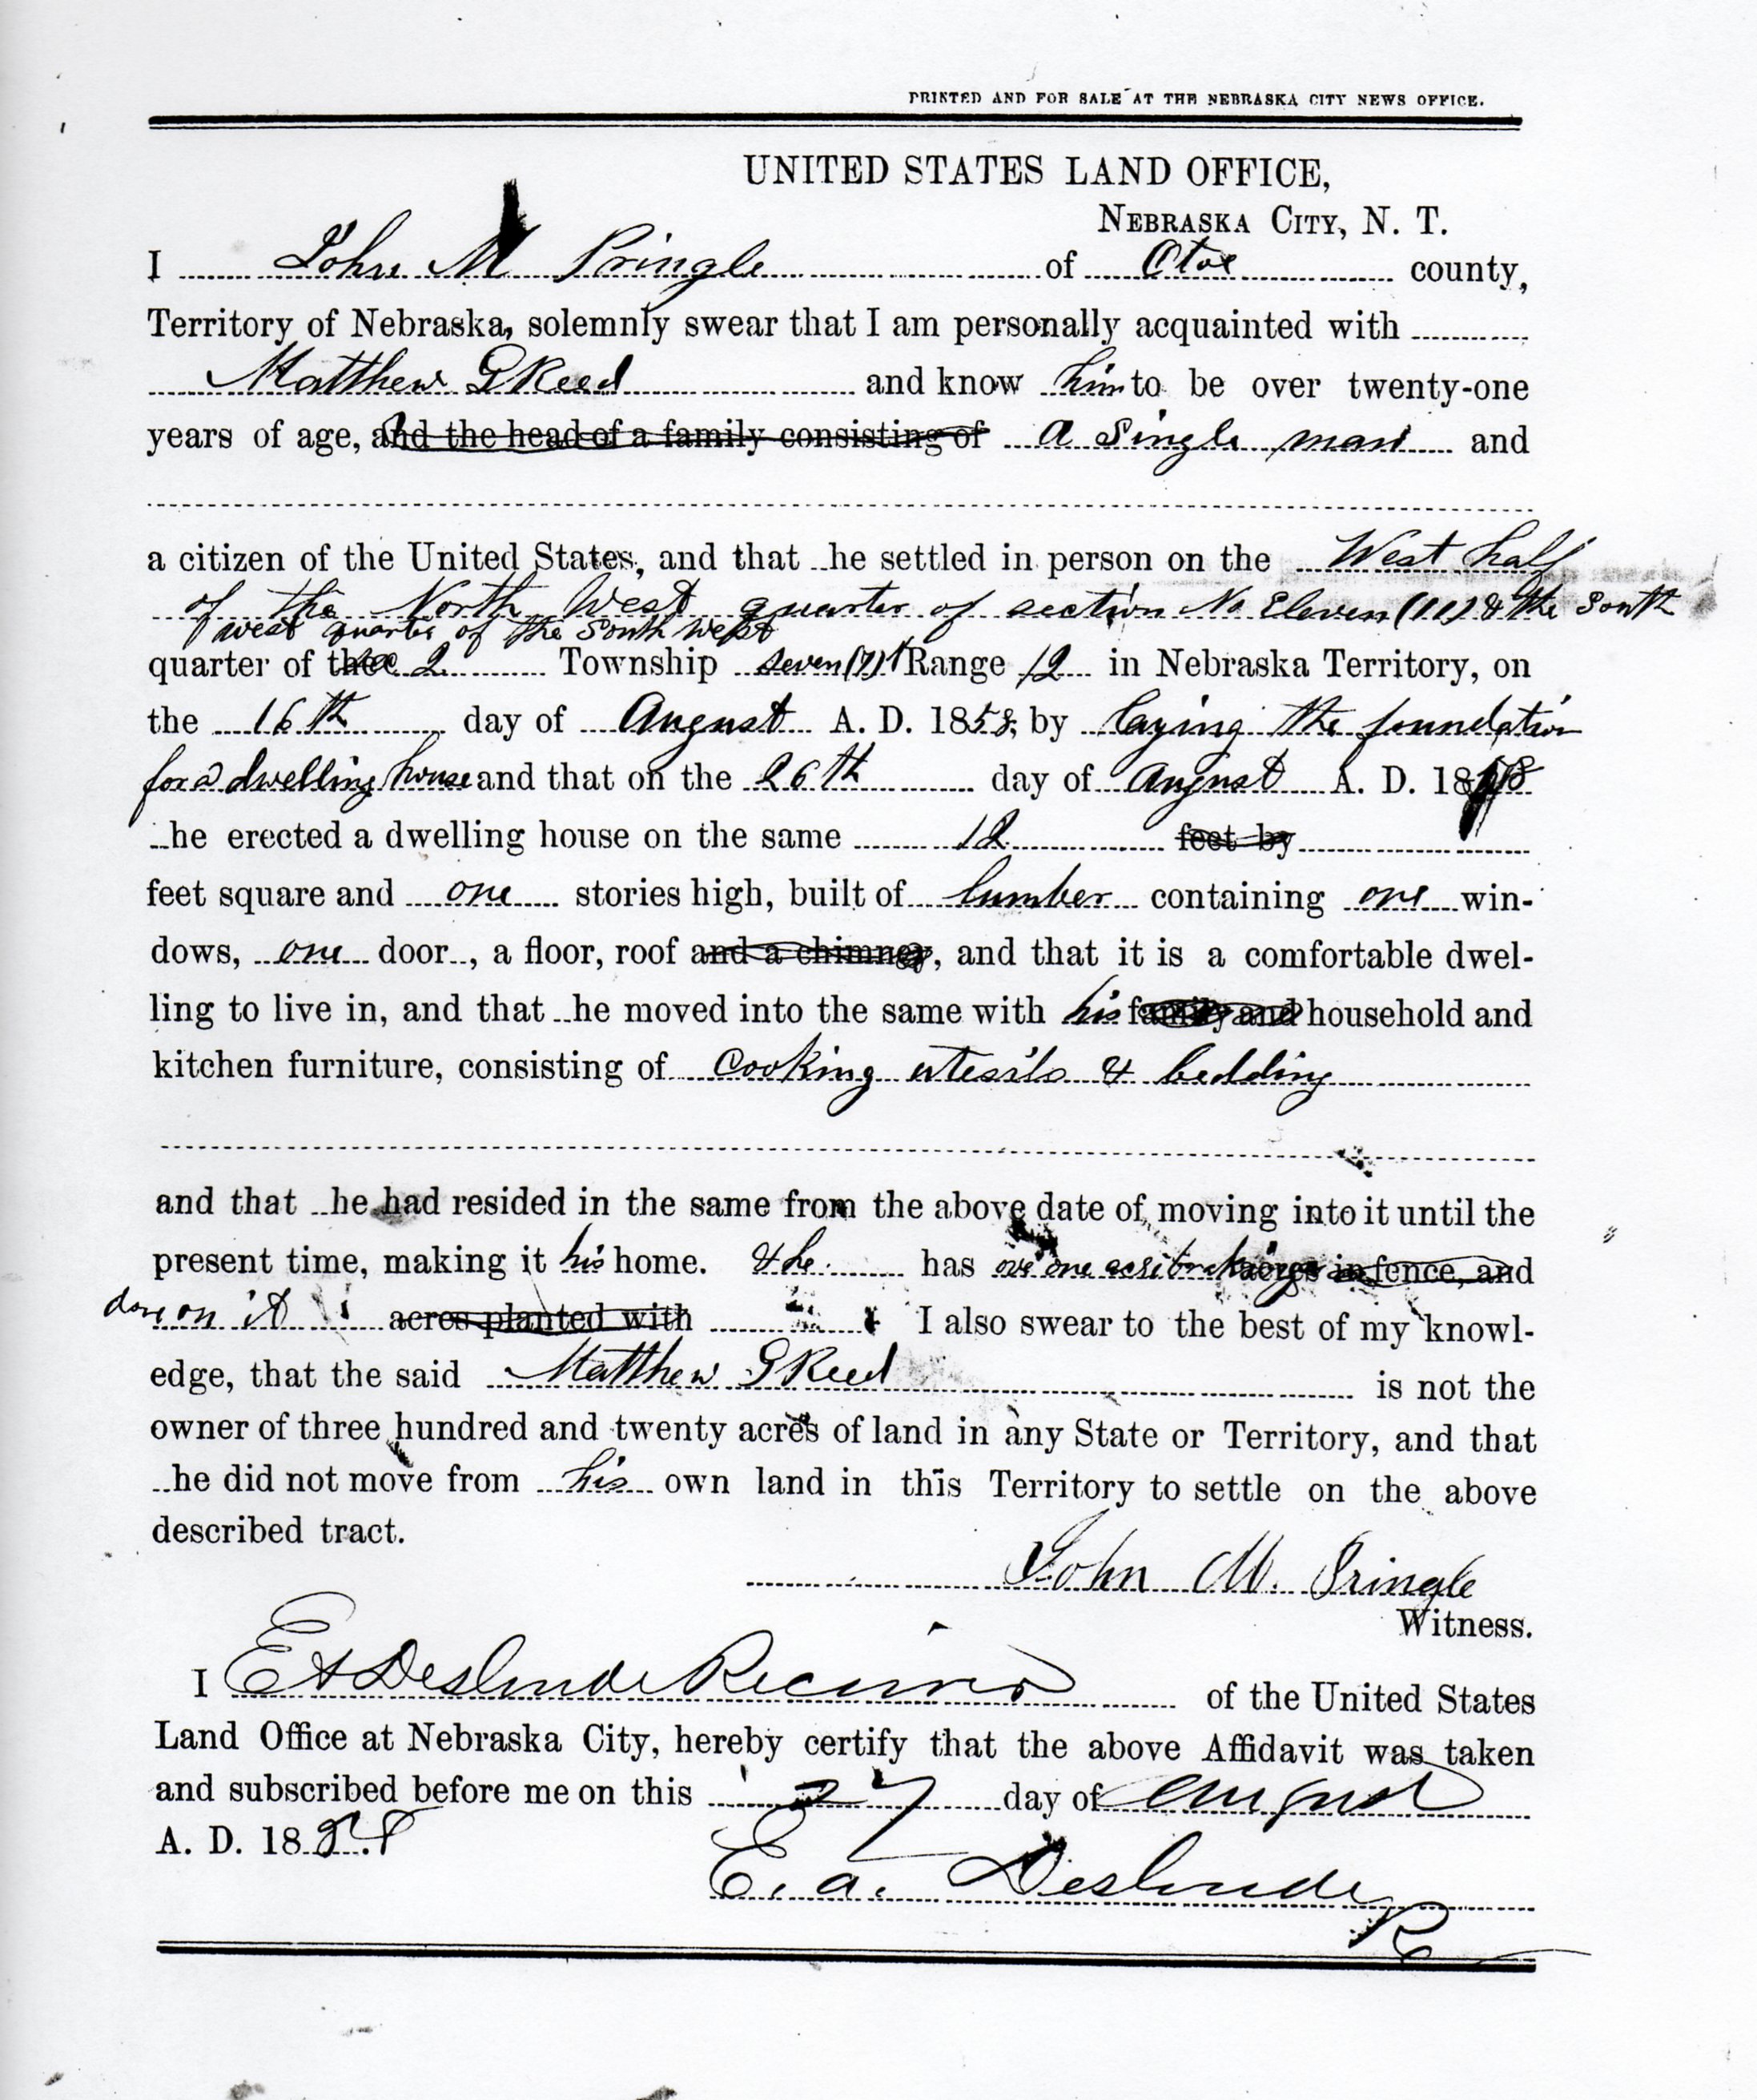 PRINTED AND FOR SALE AT THE NEBRASKA CITY NEWS OFFICE.
UNITED STATES LAND OFFICE,
NEBRASKA CITY, N. T.
I John M Pringle of Otoe county,
Territory of Nebraska, solemnly swear that I am personally acquainted with
Matthew G Reed and know him to be over twenty-one
years of age, and the head of a family consisting of a single man and
a citizen of the United States, and that he settled in person on the West half
of the North West quarter of section No Eleven (11) & the South
west quarter of the South West
quarter of the 2 Township seven (7) Range 12 in Nebraska Territory, on
the 16th day of August A. D. 1858, by laying the foundation
for a dwelling house and that on the 26th day of August A. D. 1858
he erected a dwelling house on the same 12 feet by
feet square and one stories high, built of lumber containing one win-
dows, one door, a floor, roof and a chimney, and that it is a comfortable dwel-
ling to live in, and that he moved into the same with his family and household and
kitchen furniture, consisting of Cooking utesils & bedding
and that he had resided in the same from the above date of moving into it until the
present time, making it his home. & he has one acre acres in fence, and
done on it acres planted with I also swear to the best of my knowl-
edge, that the said Matthew G Reed is not the
owner of three hundred and twenty acres of land in any State or Territory, and that
he did not move from his own land in this Territory to settle on the above
described tract.
John M. Pringle
Witness.
I E A Deslonde Receiver of the United States
Land Office at Nebraska City, hereby certify that the above Affidavit was taken
and subscribed before me on this 27 day of August
A. D. 1858
E. A. Deslonde
R